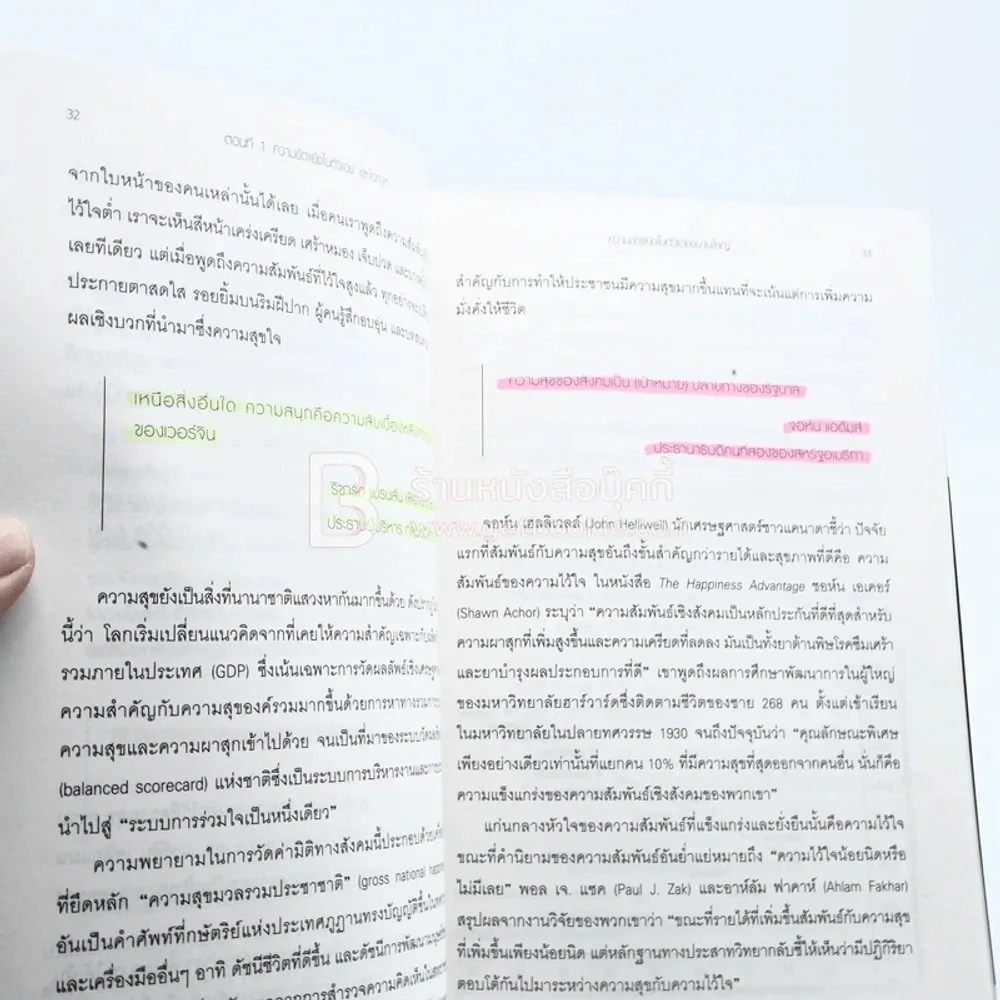 32
ตอนที่ 1 ความขัดแย้งในตัวเอง
จากใบหน้าของคนเหล่านั้นได้เลย เมื่อคนเราพูดถึงความสัมพันธ์
ไว้ใจต่ำ เราจะเห็นสีหน้าเคร่งเครียด เศร้าหมอง เจ็บปวด
เลยทีเดียว แต่เมื่อพูดถึงความสัมพันธ์ที่ไว้ใจสูงแล้ว
ประกายตาสดใส รอยยิ้มบนริมฝีปาก ผู้คนรู้สึกอบอุ่น
ผลเชิงบวกที่นำมาซึ่งความสุขใจ
เหนือสิ่งอื่นใด ความสนุกคือความลับเบื้องหลัง
ของเวอร์จิน
ริชาร์ด แบรนสัน
ประธานบริหาร
ความสุขยังเป็นสิ่งที่นานาชาติแสวงหากันมากขึ้นด้วย
นี้ว่า โลกเริ่มเปลี่ยนแนวคิดจากที่เคยให้ความสำคัญเฉพาะกับ
รวมภายในประเทศ (GDP) ซึ่งเน้นเฉพาะการวัดผลลัพธ์เชิงเศรษฐกิจ
ความสำคัญกับความสุของค์รวมมากขึ้นด้วยการหาทาง
ความสุขและความผาสุกเข้าไปด้วย จนเป็นที่มาของระบบวัด
(balanced scorecard) แห่งชาติซึ่งเป็นระบบการบริหารงานและ
นำไปสู่ “ระบบการร่วมใจเป็นหนึ่งเดียว”
ความพยายามในการวัดค่ามิติทางสังคมนี้ประกอบด้วย
ที่ยึดหลัก “ความสุขมวลรวมประชาชาติ” (gross national
อันเป็นคำศัพท์ที่กษัตริย์แห่งประเทศภูฏานทรงบัญญัติขึ้น
และเครื่องมืออื่นๆ อาทิ ดัชนีชีวิตที่ดีขึ้น และดัชนีการพัฒนามนุษย์
จากการสำรวจความคิดเห็น
ความขัดแย้งในตัวเองขนานใหญ่
33
สำคัญกับการทำให้ประชาชนมีความสุขมากขึ้นแทนที่จะเน้นแต่การเพิ่มความ
มั่งคั่งให้ชีวิต
ความสุขของสังคมเป็น (เป้าหมาย) ปลายทางของรัฐบาล
จอห์น แอดัมส์
ประธานาธิบดีคนที่สองของสหรัฐอเมริกา
B ร้านหนังสือบุ๊คกี้
จอห์น เฮลลิเวลล์ (John Helliwell) นักเศรษฐศาสตร์ชาวแคนาดาชี้ว่า ปัจจัย
แรกที่สัมพันธ์กับความสุขอันถึงขั้นสำคัญกว่ารายได้และสุขภาพที่ดีคือ ความ
สัมพันธ์ของความไว้ใจ ในหนังสือ The Happiness Advantage ชอห์น เอเคอร์
(Shawn Achor) ระบุว่า “ความสัมพันธ์เชิงสังคมเป็นหลักประกันที่ดีที่สุดสำหรับ
ความผาสุกที่เพิ่มสูงขึ้นและความเครียดที่ลดลง มันเป็นทั้งยาต้านพิษโรคซึมเศร้า
และยาบำรุงผลประกอบการที่ดี” เขาพูดถึงผลการศึกษาพัฒนาการในผู้ใหญ่
ของมหาวิทยาลัยฮาร์วาร์ดซึ่งติดตามชีวิตของชาย 268 คน ตั้งแต่เข้าเรียน
ในมหาวิทยาลัยในปลายทศวรรษ 1930 จนถึงปัจจุบันว่า “คุณลักษณะพิเศษ
เพียงอย่างเดียวเท่านั้นที่แยกคน 10% ที่มีความสุขที่สุดออกจากคนอื่น นั่นก็คือ
ความแข็งแกร่งของความสัมพันธ์เชิงสังคมของพวกเขา”
แก่นกลางหัวใจของความสัมพันธ์ที่แข็งแกร่งและยั่งยืนนั้นคือความไว้ใจ
ขณะที่คำนิยามของความสัมพันธ์อันย่ำแย่หมายถึง “ความไว้ใจน้อยนิดหรือ
ไม่มีเลย” พอล เจ. แซค (Paul J. Zak) และอาห์ลัม ฟาคาห์ (Ahlam Fakhar)
สรุปผลจากงานวิจัยของพวกเขาว่า “ขณะที่รายได้ที่เพิ่มขึ้นสัมพันธ์กับความสุข
ที่เพิ่มขึ้นเพียงน้อยนิด แต่หลักฐานทางประสาทวิทยากลับชี้ให้เห็นว่ามีปฏิกิริยา
ตอบโต้กันไปมาระหว่างความสุขกับความไว้ใจ”